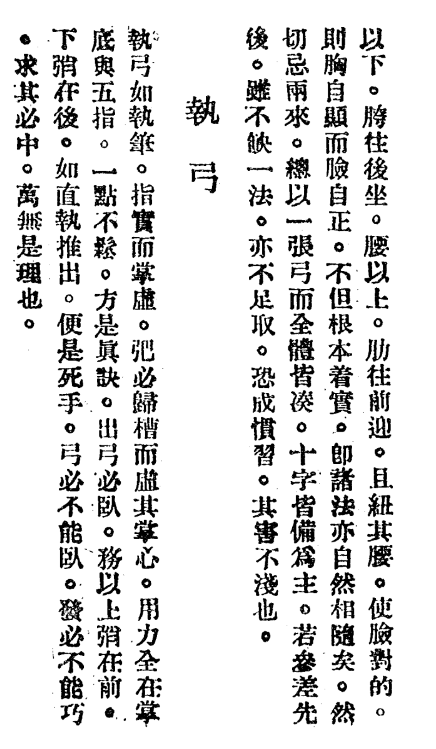 以下。胯往後坐。腰以上。肋往前迎。且紐其腰。使臉對的。
則胸自顯而臉自正。不但根本着實。卽諸法亦自然相隨矣。然
切忌兩來。總以一張弓而全體皆湊。十字皆備爲主。若參差先
後。雖不缺一法。亦不足取。恐成慣習。其害不淺也。
執弓
執弓如執筆。指實而掌虛。弝必歸槽而虛其掌心。用力全在掌
底與五指。一點不鬆。方是眞訣。出弓必臥。務以上弰在前。
下弰在後。如直執推出。便是死手。弓必不能臥。發必不能巧
。求其必中。萬無是理也。